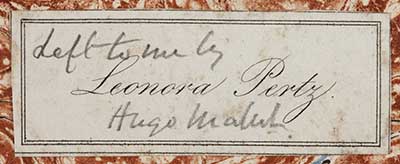 Left to me by
Leonora Pertz.
Hugo